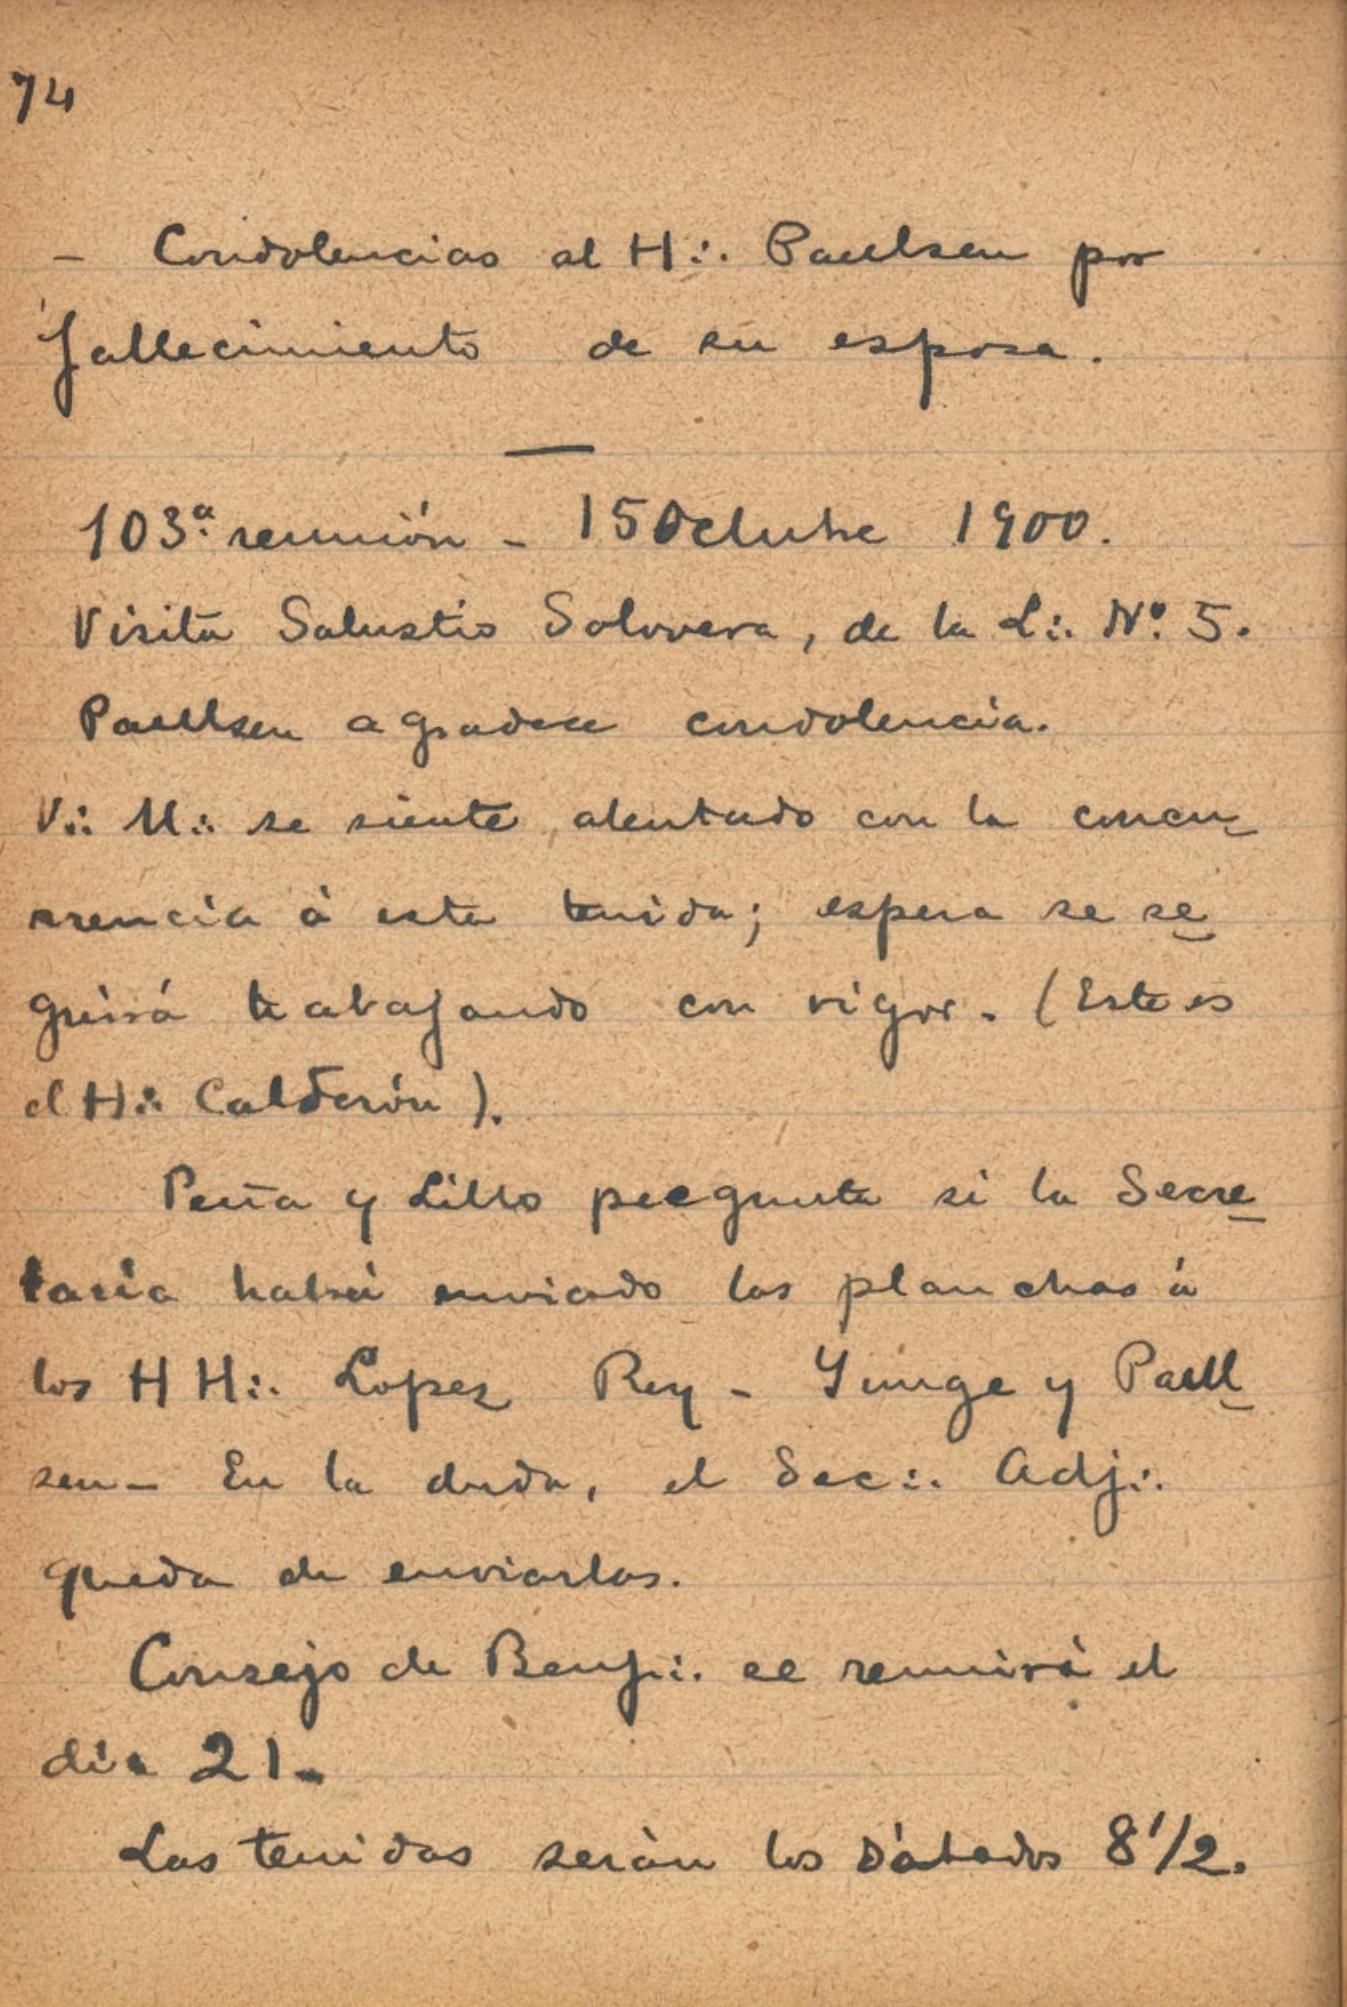 74
- Condolencias al H∴ Paellsen por
fallecimiento de su esposa.
103ª reunión - 15 Octubre 1900.
Visita Salustio Solovera, de la L∴ Nº 5.
Paellsen agradece condolencia.
V∴ M∴ se siente alentado con la concu-
rrencia á esta tenida; espera se se
guirá trabajando con vigor. (Este es
el H∴ Calderón).
Peña y Lillo pregunta si la Secre
taría habrá enviado las planchas á
los HH∴ Lopez Rey - Yunge y Paell
sen - En la duda, el Sec∴ Adj∴
queda de enviarlas.
Consejo de Benf∴ se reunirá el
día 21 -
Las tenidas serán los Sábados 8 1/2.